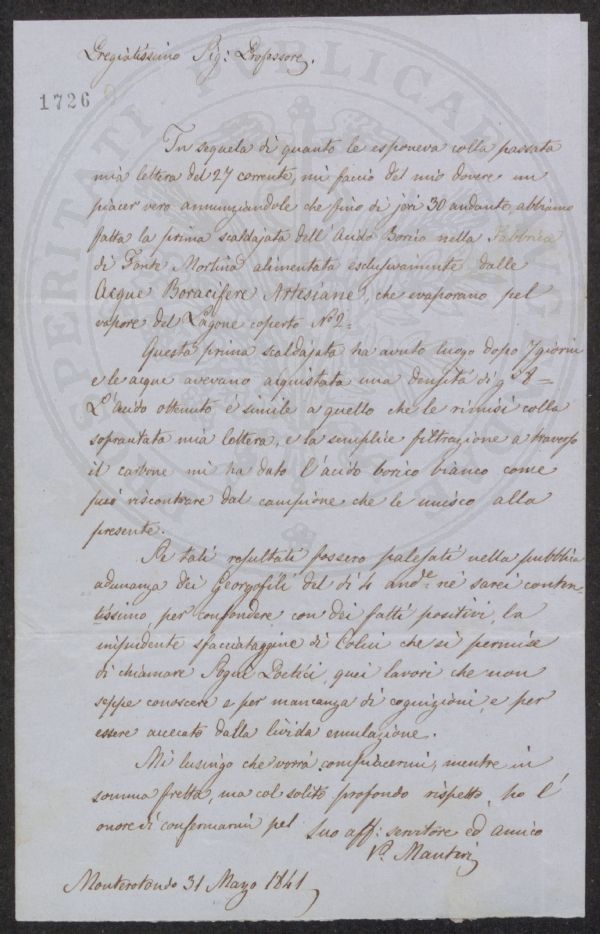 Pregiatissimo Sig: Professore.
1726
PROSPERITATI PUBLICAE AUGENDAE
In sequela di quanto le esponeva colla passata
mia lettera del 27 corrente, mi faccio del mio dovere un
piacer vero annunziandole che fino di jeri 30 andante, abbiamo
fatta la prima scaldajata dell'Acido Borico nella Fabbrica
di Fonte Mortina alimentata esclusivamente dalle
Acque Boracifere Artesiane, che evaporano pel
vapore del Lagone coperto N° 9=
Questa prima scaldajata ha avuto luogo dopo 7 giorni
e le acque avevano acquistata una densità di g.di 8=
L'acido ottenuto è simile a quello che le rimisi colla
sopracitata mia lettera, e la semplice filtrazione a traverso
il carbone mi ha dato l'acido borico bianco come
può riscontrare dal campione che le unisco alla
presente.
Se tali resultati fossero palesati nella pubblica
adunanza dei Georgofili del dì 4 and.e ne sarei conten-
tissimo, per confondere con dei fatti positivi, la
impudente sfacciataggine di Colui che si permise
di chiamare Sogni Poetici, quei lavori che non
seppe conoscere e per mancanza di cognizioni, e per
essere accecato dalla livida emulazione.
Mi lusingo che vorrà compiacermi, mentre in
somma fretta, ma col solito profondo rispetto, ho l'
onore di confermarmi pel suo aff: servitore ed amico
V.o Manteri
Monterotondo 31 Marzo 1841